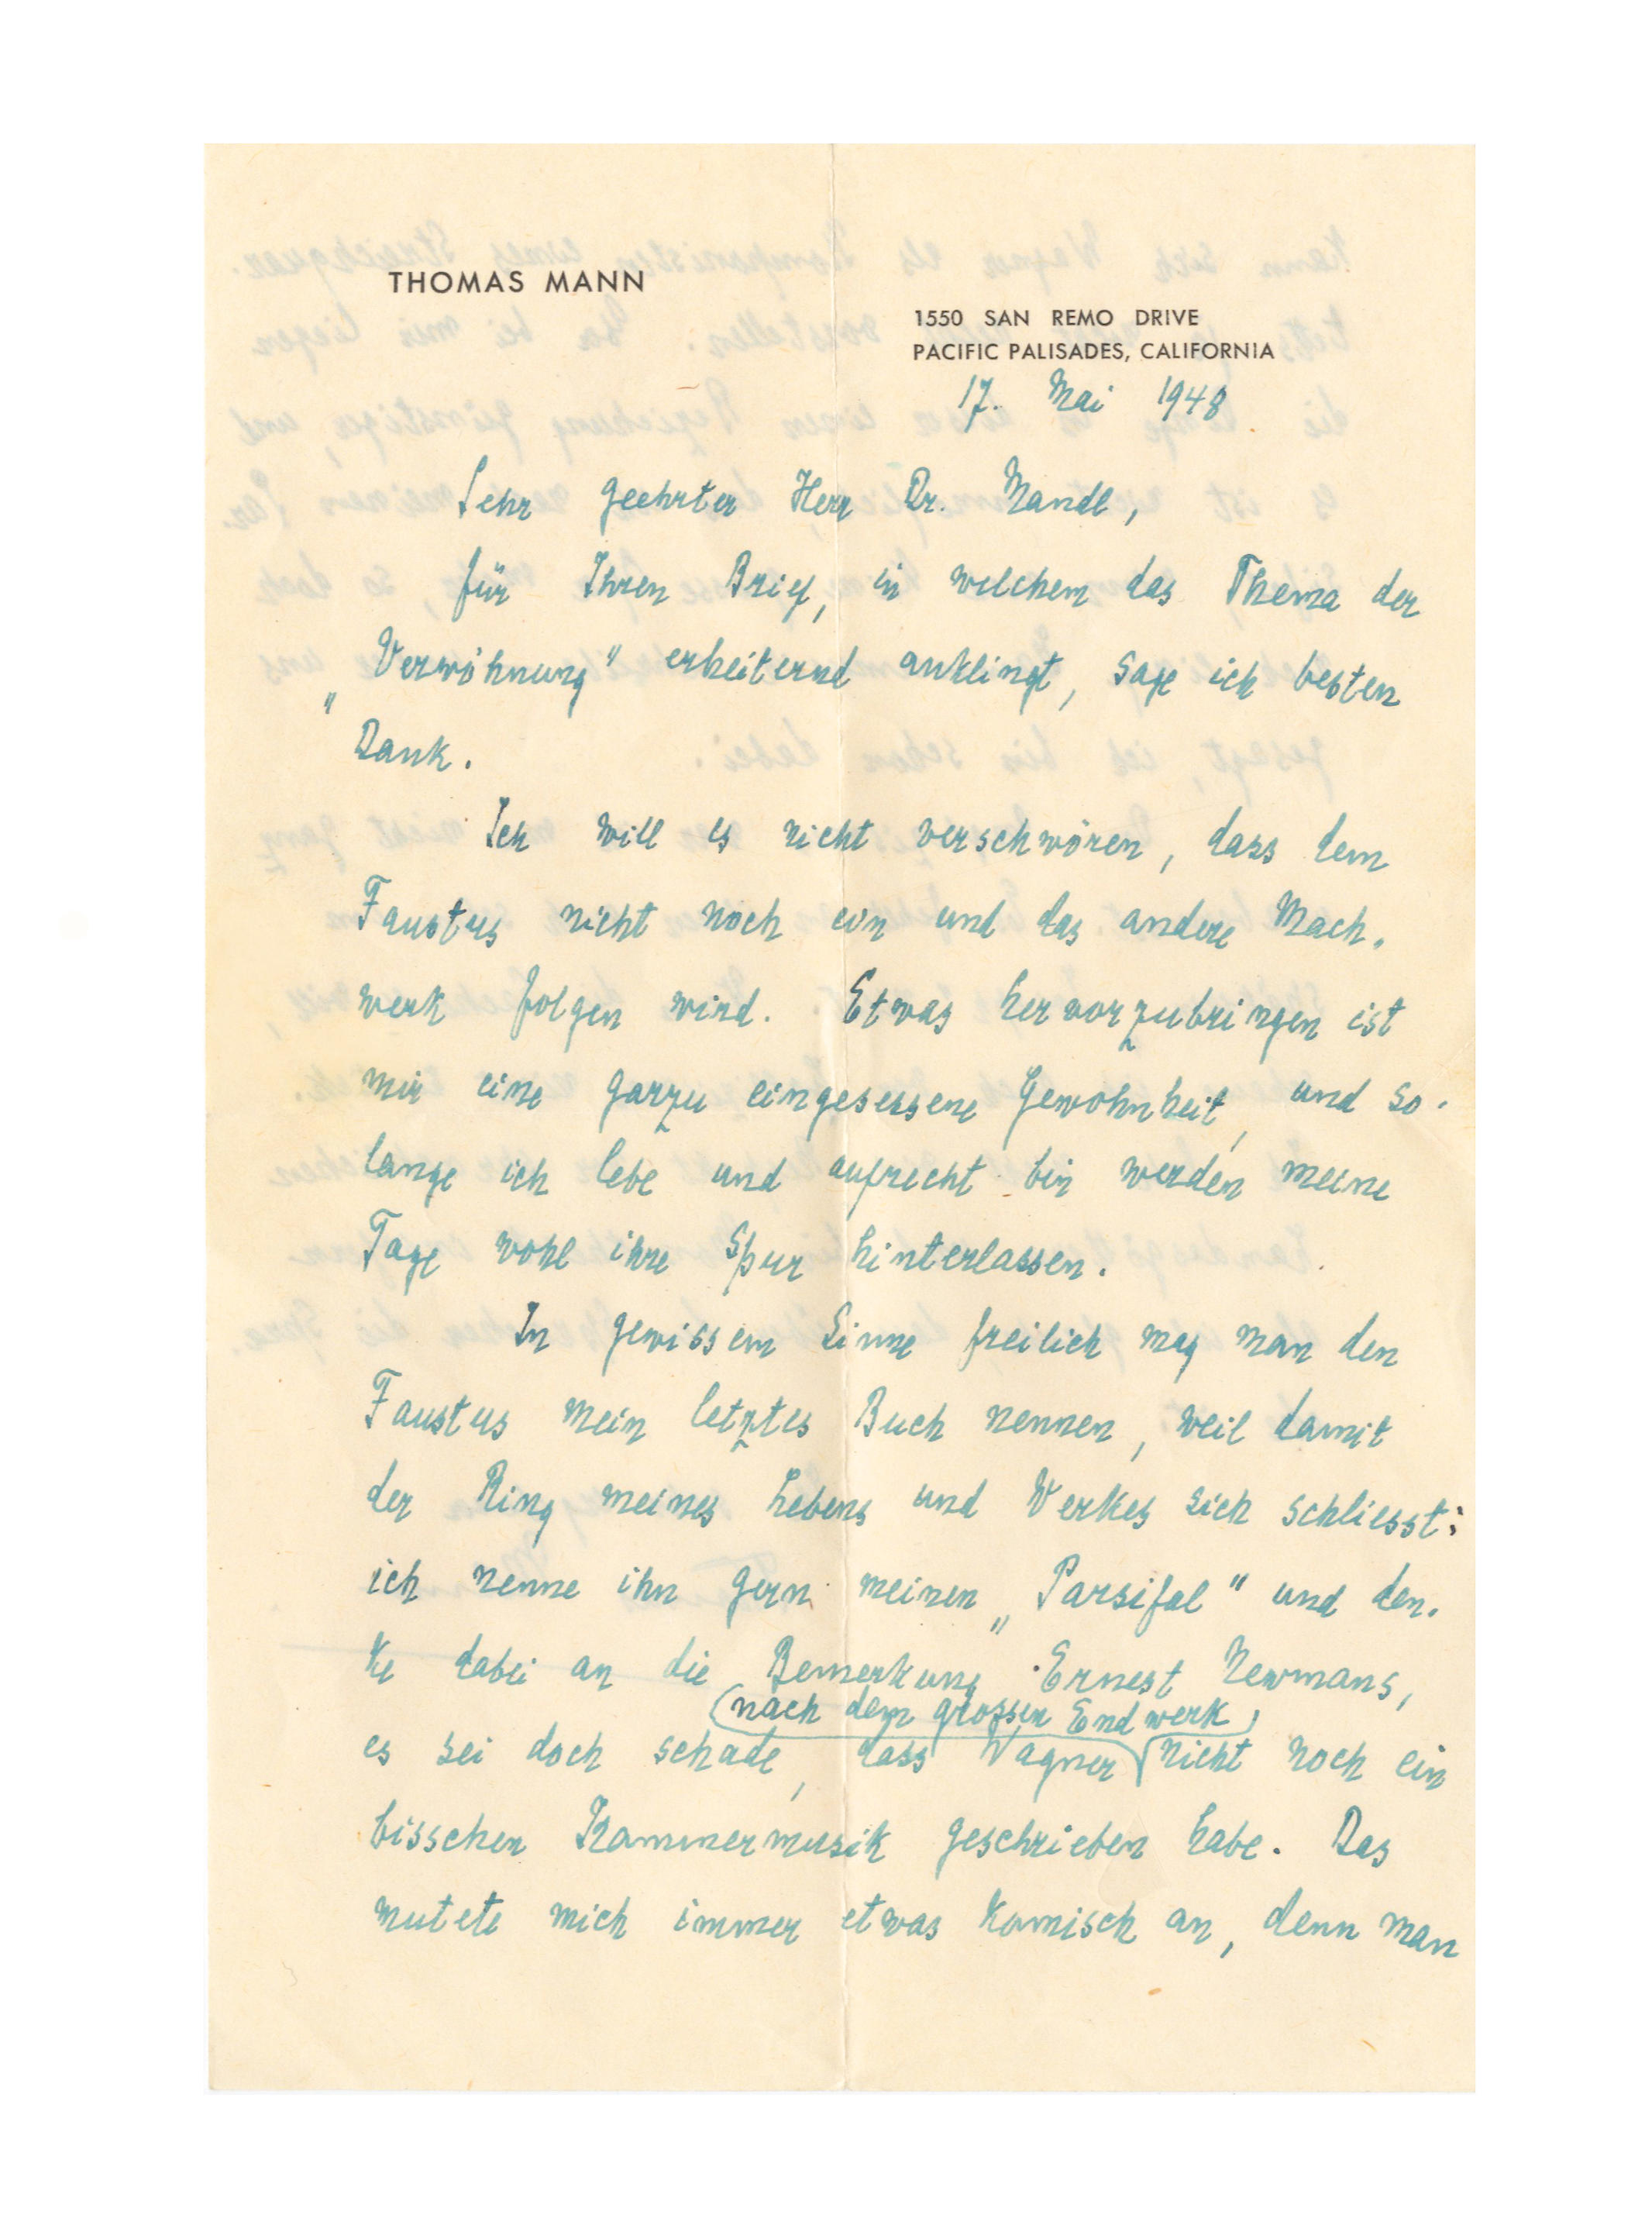 THOMAS MANN
1550 SAN REMO DRIVE
PACIFIC PALISADES, CALIFORNIA
17. Mai 1948
Sehr geehrter Herr Dr. Mandl,
für Ihren Brief, in welchem das Thema der
„Verwöhnung" erheiternd anklingt, sage ich besten
Dank.
Ich will es nicht verschwören, dass dem
Faustus nicht noch ein und das andere Mach-
werk folgen wird. Etwas hervorzubringen ist
mir eine garzu eingesessene Gewohnheit, und so-
lange ich lebe und aufrecht bin werden meine
Tage wohl ihre Spur hinterlassen.
In gewissem Sinne freilich mag man den
Faustus mein letztes Buch nennen, weil damit
der Ring meines Lebens und Werkes sich schliesst:
ich nenne ihn gern meinen „Parsifal" und den-
ke dabei an die Bemerkung Ernest Newmans,
(nach dem grossen Endwerk)
es sei doch schade, dass Wagner nicht noch ein
bisschen Kammermusik geschrieben habe. Das
mutete mich immer etwas komisch an, denn man